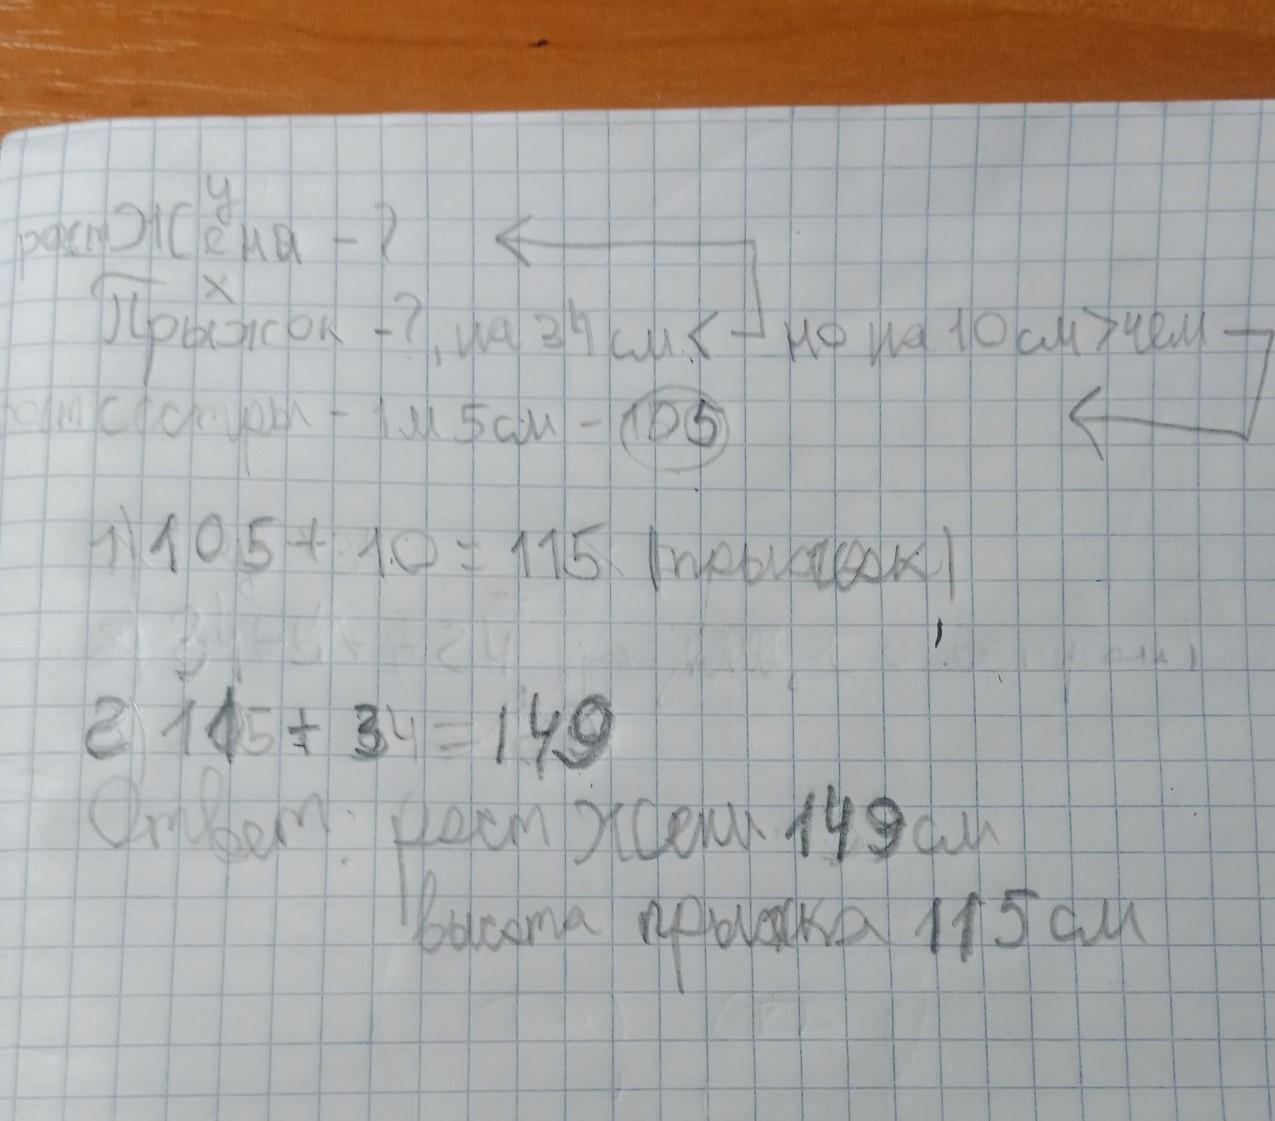 у
рост Жена - ?
х
Прыжок - ?, на 34 см < но на 10 см > чем
рост сестры - 1 м 5 см - 105
1) 105 + 10 = 115 (прыжок)
2) 115 + 34 = 149
Ответ: рост Жени 149 см
высота прыжка 115 см